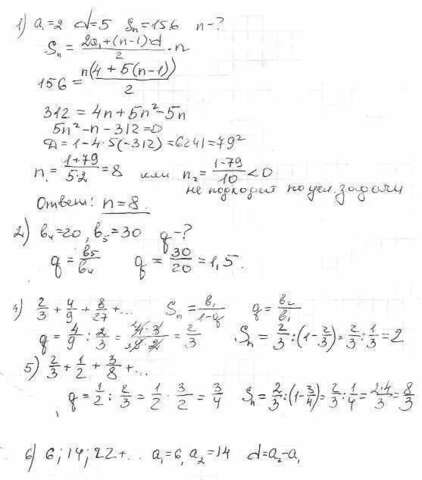 1) a₁=2 d=5 Sₙ=156 n-?
Sₙ = (2a₁+(n-1)·d)/2 · n
156 = n(4+5(n-1))/2
312 = 4n+5n²-5n
5n²-n-312=0
D=1-4·5(-312)=6241=79²
n₁=(1+79)/(5·2)=8 или n₂=(1-79)/10<0
не подходит по усл. задачи
Ответ: n=8.
2) b₄=20, b₅=30 q-?
q=b₅/b₄ q=30/20=1,5.
4) 2/3+4/9+8/27+... Sₙ=b₁/(1-q) q=b₂/b₁
q=4/9:2/3=(4·3)/(9·2)=2/3 Sₙ=2/3:(1-2/3)=2/3:1/3=2
5) 2/3+1/2+3/8+...
q=1/2:2/3=1/2·3/2=3/4 Sₙ=2/3:(1-3/4)=2/3:1/4=(2·4)/3=8/3
6) 6;14;22+.. a₁=6, a₂=14 d=a₂-a₁